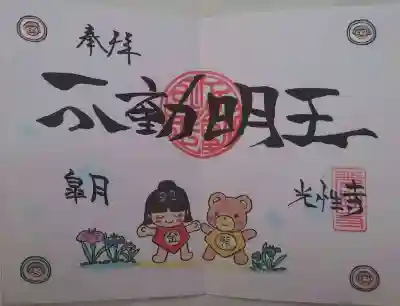 奉拝
不動明王
皐月
光性寺
金